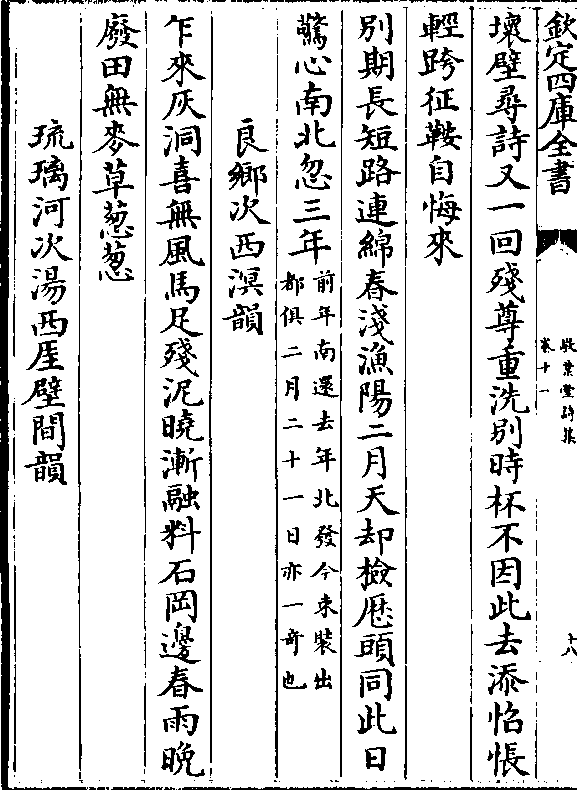 欽定四庫全書
敬業堂詩集
卷十一
十八
壞壁尋詩又一回殘尊重洗别時杯不因此去添惆悵
輕跨征鞍自悔來
别期長短路連綿春淺漁陽二月天却檢厯頭同此日
驚心南北忽三年前年南還去年北發今束裝出
都俱二月二十一日亦一奇也
良鄉次西溟韻
乍來灰洞喜無風馬足殘泥曉漸融料石岡邊春雨晚
廢田無麥草葱葱
琉璃河次湯西厓壁間韻